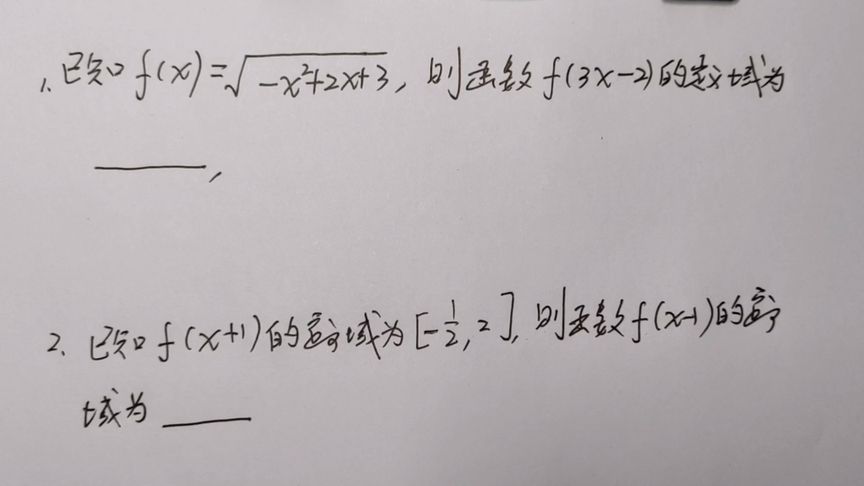 1. 已知 f(x)=√(-x²+2x+3), 则函数 f(3x-2)的定义域为
______,
2. 已知 f(x+1)的定义域为[-1/2, 2], 则函数f(x-1)的定义
域为 ______